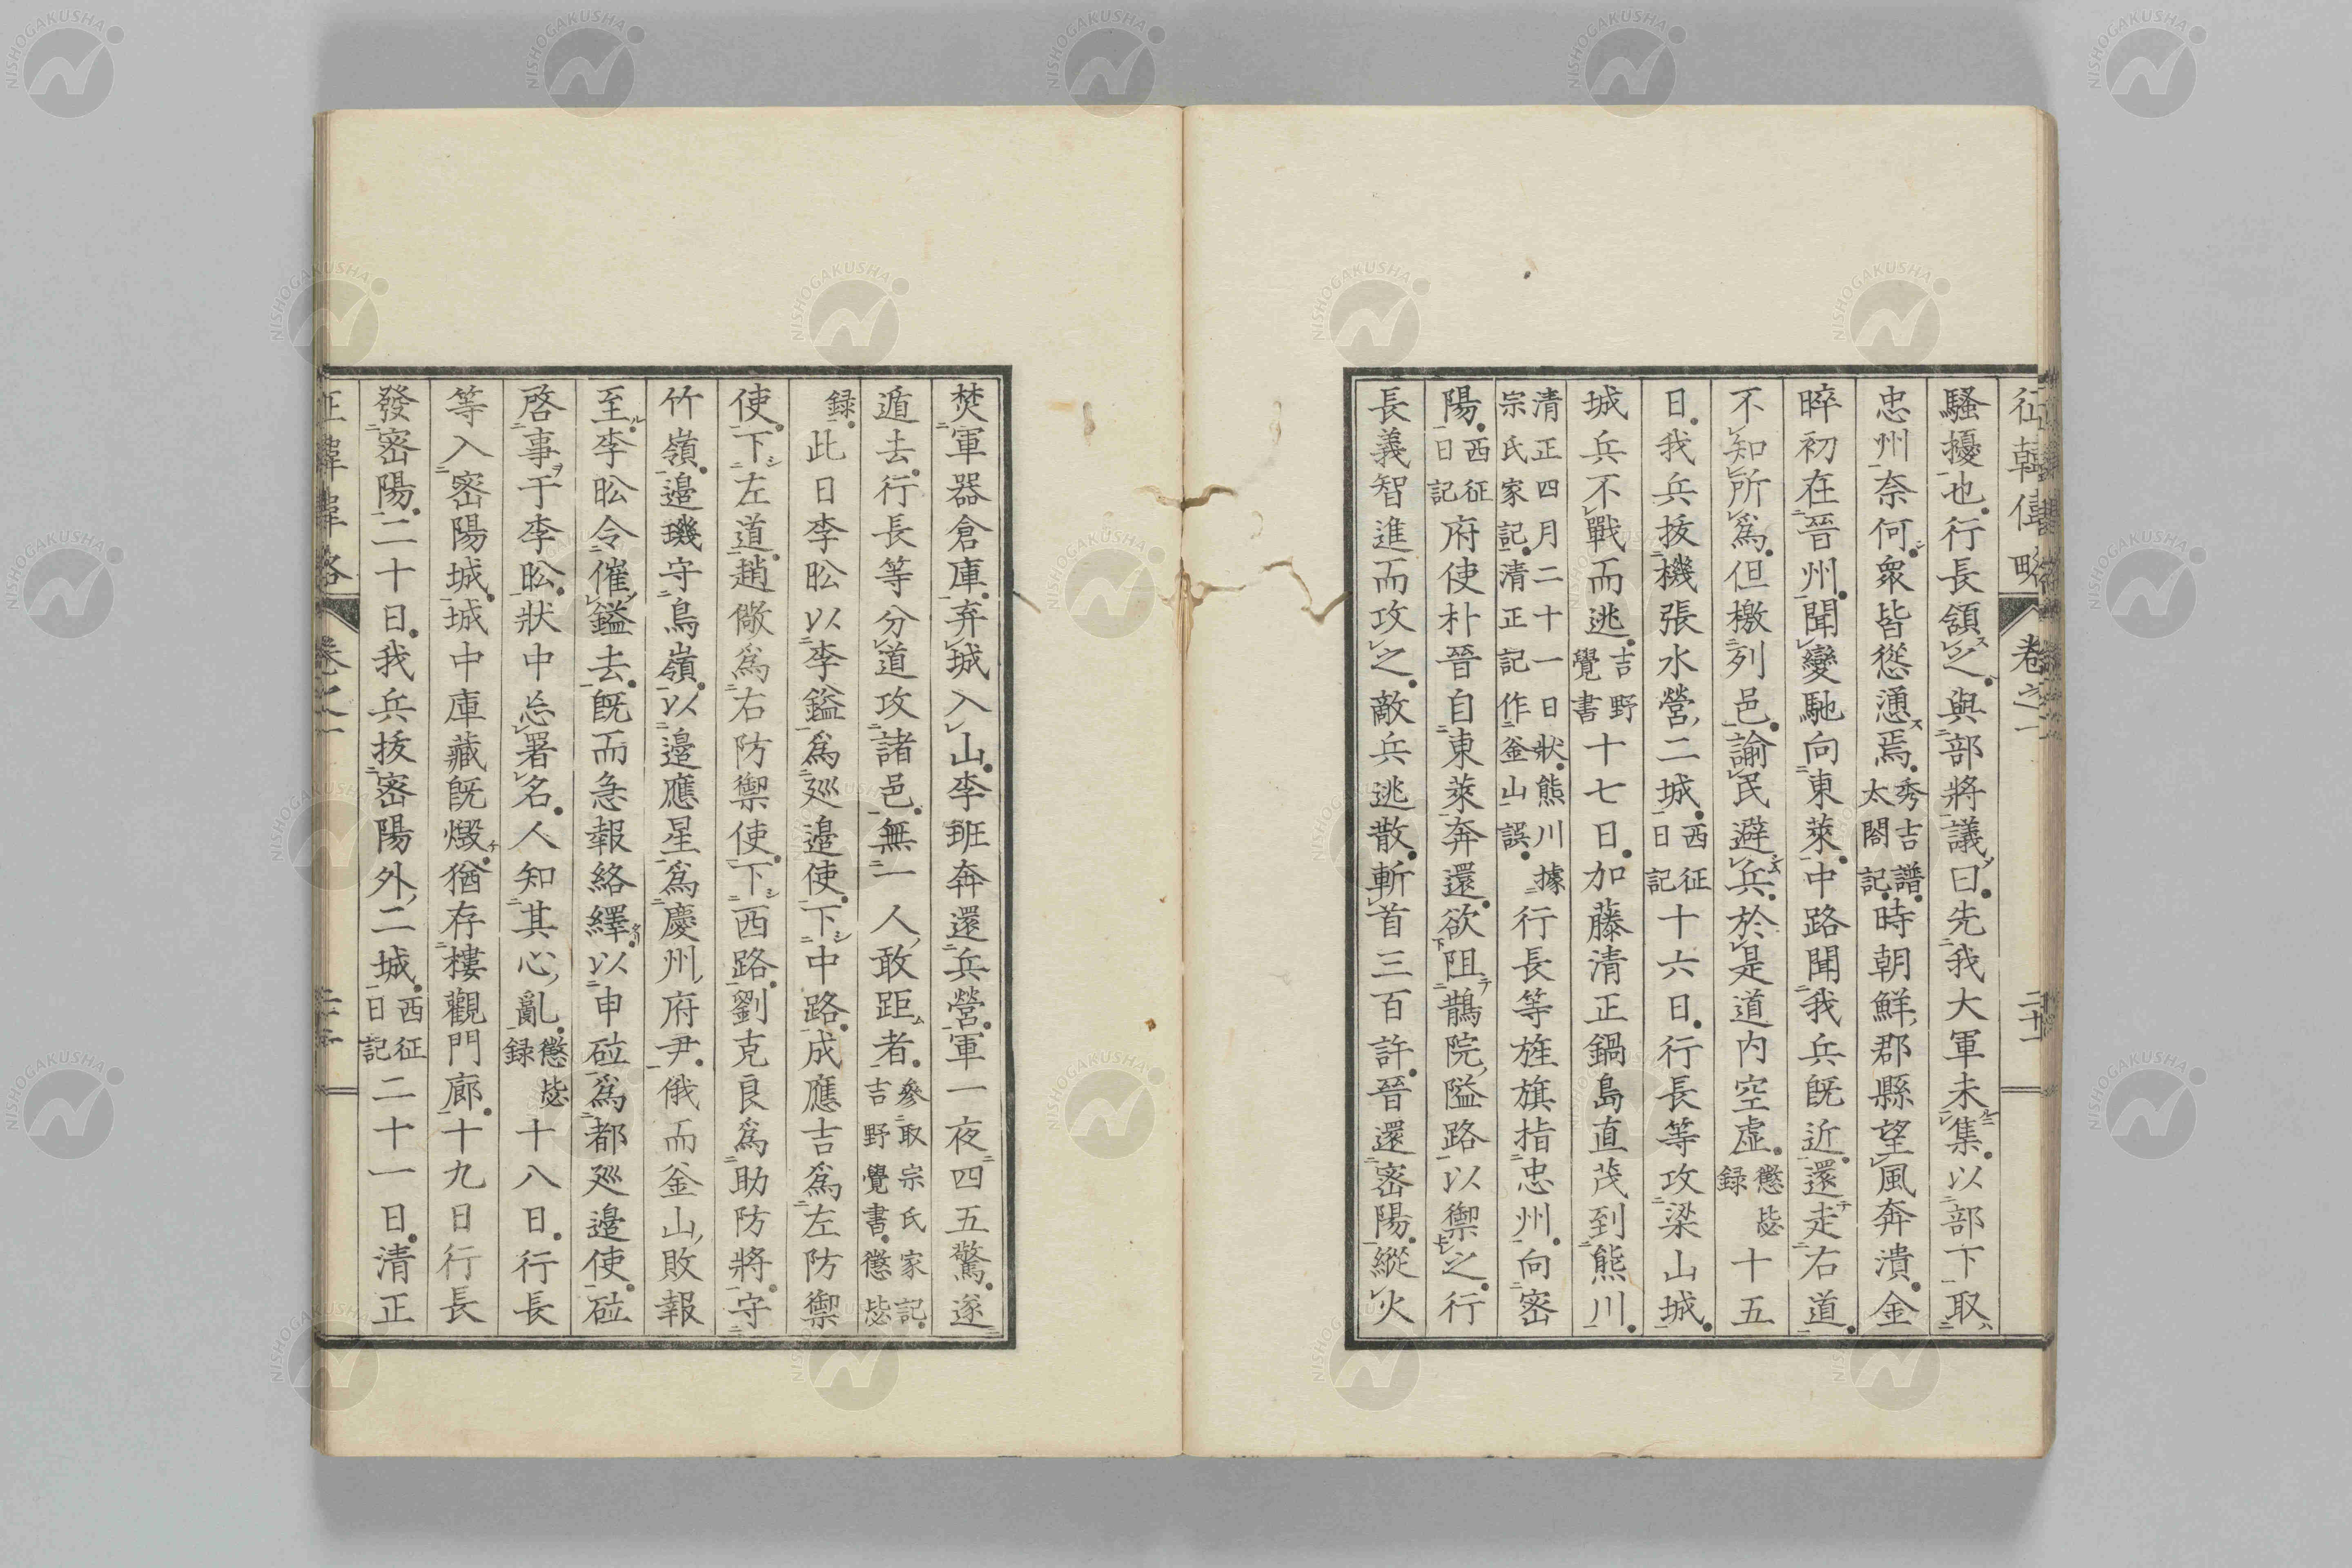 征韓偉略 卷之一 二十一
騷擾也。行長頷之。與部將議曰。先我大軍未集。以部下取
忠州奈何。衆皆慫慂焉。秀吉譜。太閤記。時朝鮮郡縣望風奔潰。金
晬初在晉州。聞變馳向東萊。中路聞我兵既近。還走右道。
不知所爲。但檄列邑。諭民避兵。於是道内空虛。懲毖録 十五
日。我兵拔機張水營二城。西征日記 十六日。行長等攻梁山城。
城兵不戰而逃。吉野覺書 十七日。加藤清正鍋島直茂到熊川。
清正四月二十一日狀。熊川據宗氏家記。清正記作釜山誤。行長等旌旗指忠州。向密
陽。西征日記 府使朴晉自東萊奔還。欲阻鵲院隘路以禦之。行
長義智進而攻之。敵兵逃散。斬首三百許。晉還密陽。縱火
焚軍器倉庫。弃城入山。李珏奔還兵營。軍一夜四五驚。遂
遁去。行長等分道攻諸邑。無一人敢距者。參取宗氏家記。吉野覺書。懲毖
録。此日李昖以李鎰爲廵邉使。下中路。成應吉爲左防禦
使。下左道。趙儆爲右防禦使。下西路。劉克良爲助防將。守
竹嶺。邉璣守鳥嶺。以邉應星爲慶州府尹。俄而釜山敗報
至。李昖令催鎰去。既而急報絡繹。以申砬爲都廵邉使。砬
啓事于李昖。狀中忘署名。人知其心亂。懲毖録 十八日。行長
等入密陽城。城中庫藏既燬。猶存樓觀門廊。十九日行長
發密陽。二十日。我兵拔密陽外二城。西征日記 二十一日。清正